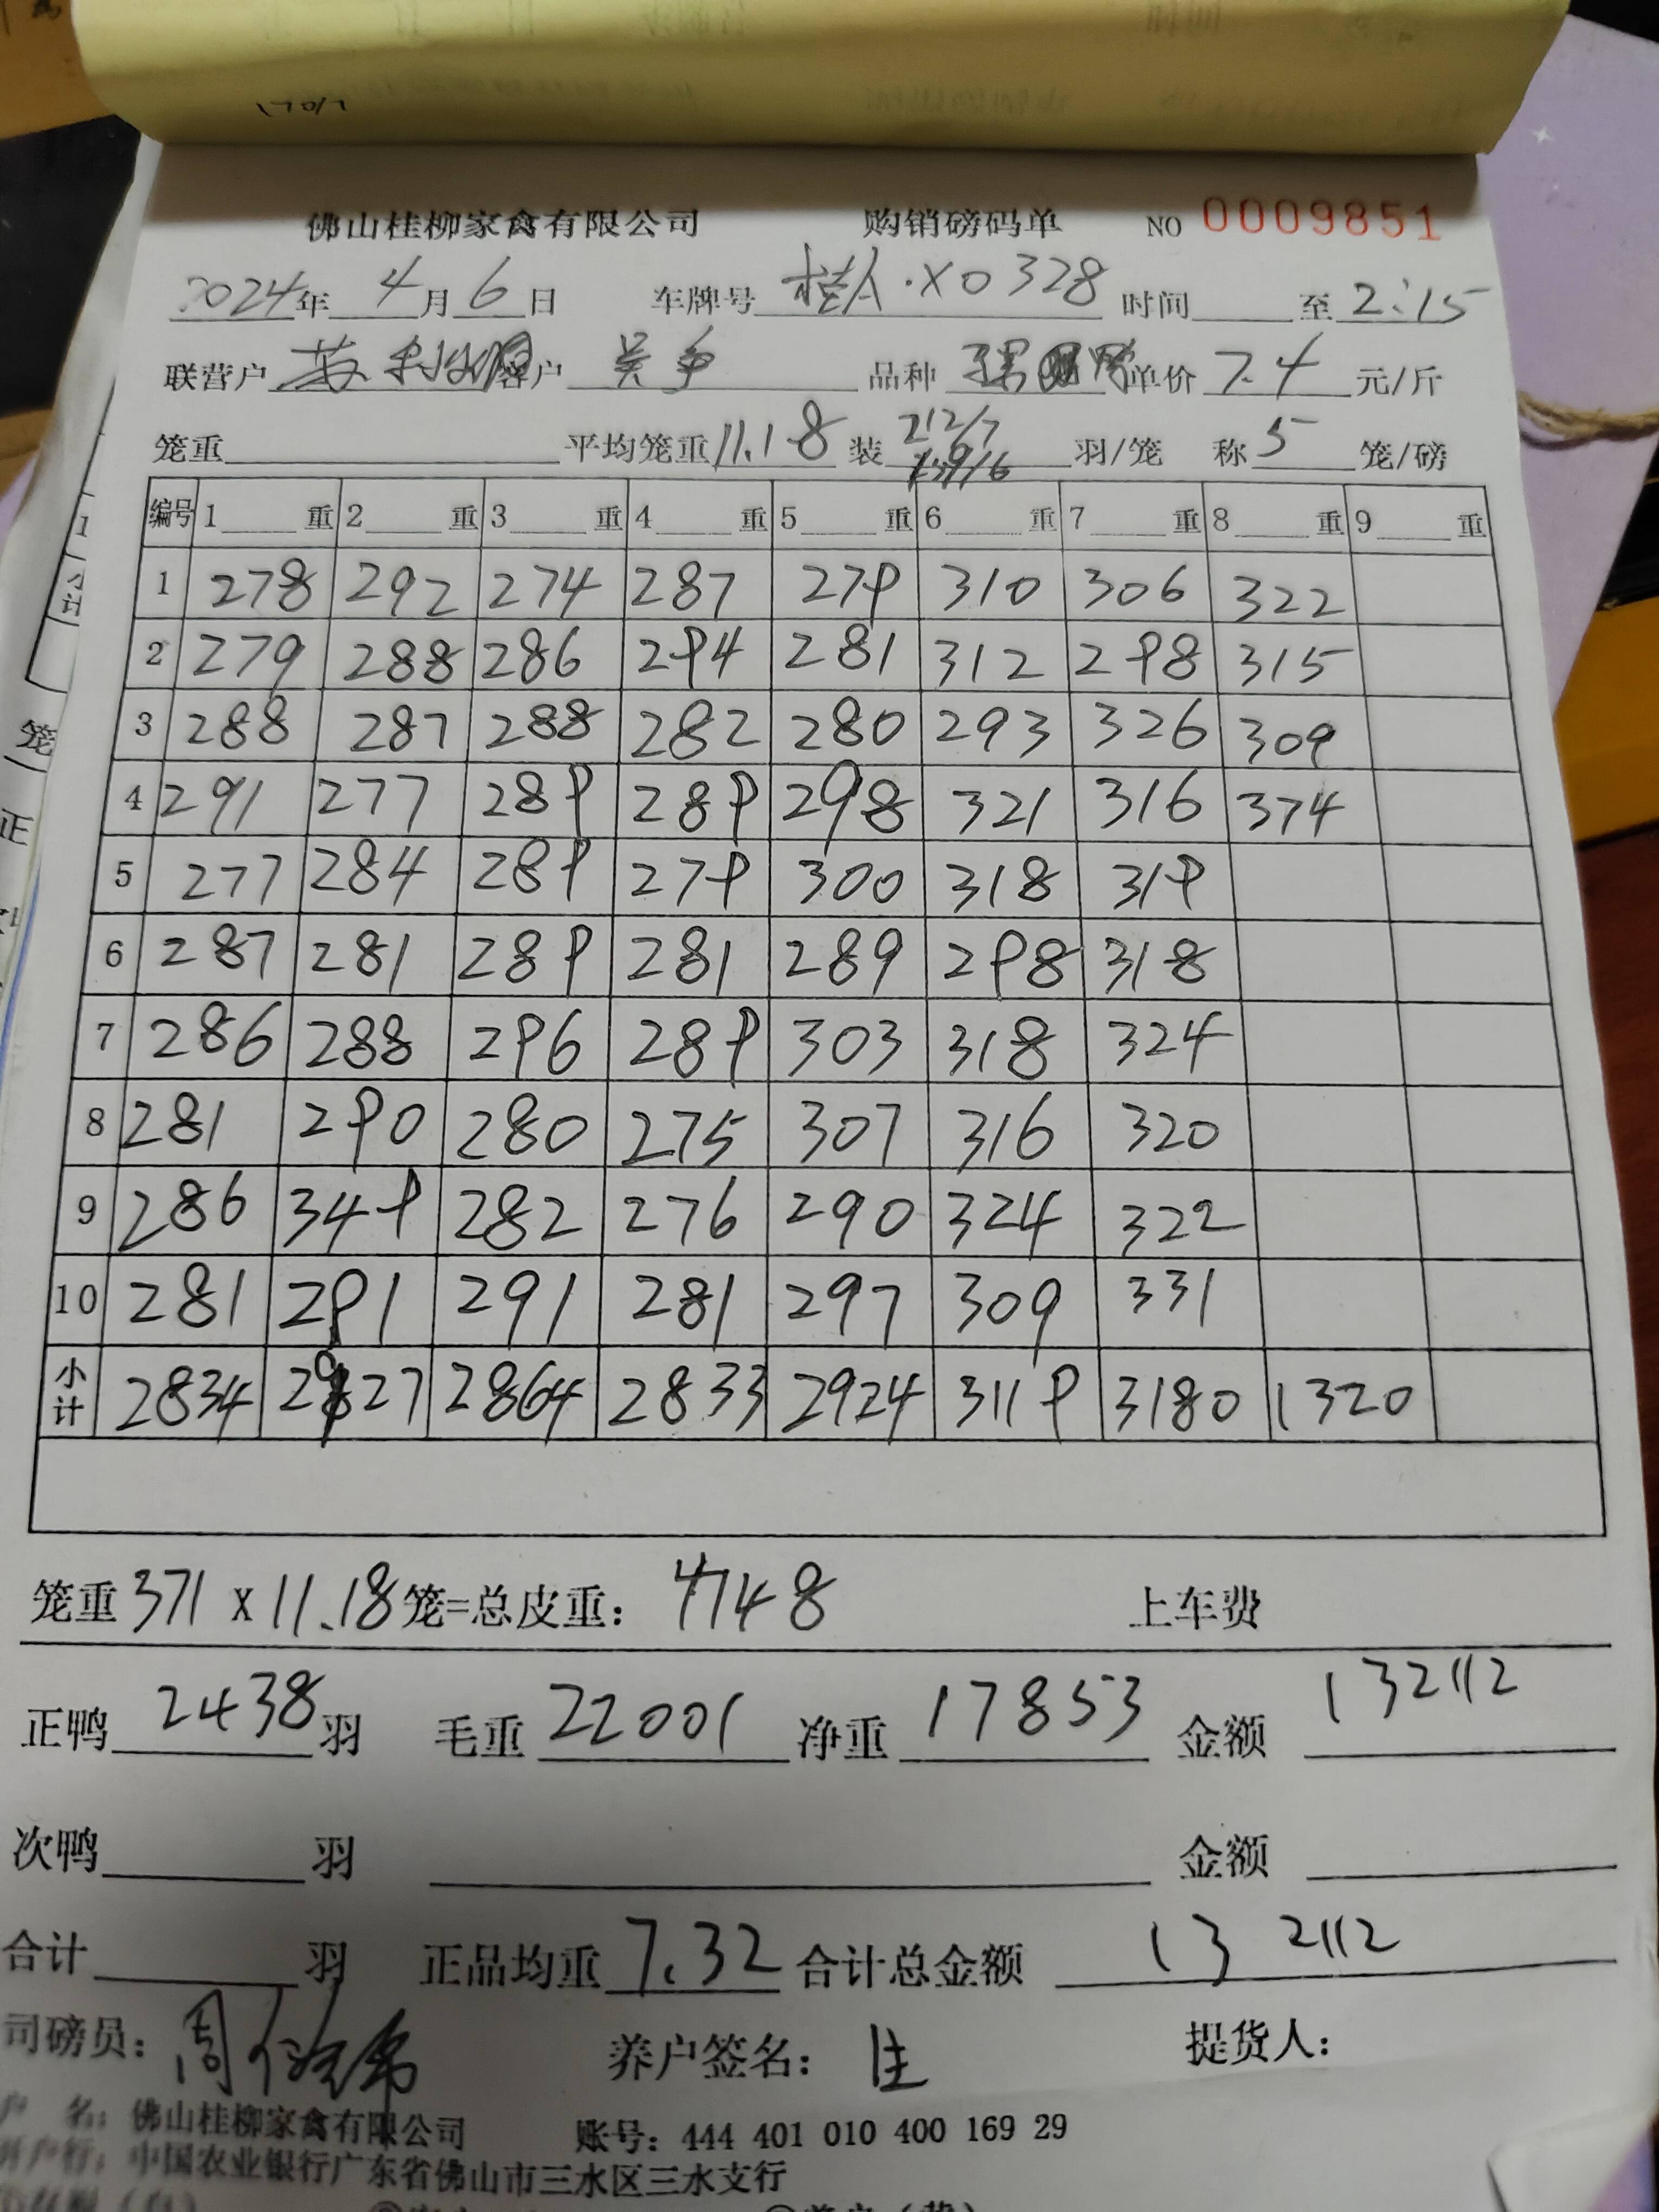 佛山桂柳家禽有限公司 购销磅码单 NO 0009851
2024年 4月6日 车牌号 桂A·X0328 时间 至 2:15
联营户 客户 吴争 品种 单价 7.4 元/斤
笼重 平均笼重 11.18 装 212/7 羽/笼 称 5 笼/磅
159/6
编号 1 重 2 重 3 重 4 重 5 重 6 重 7 重 8 重 9 重
1 278 292 274 287 279 310 306 322
2 279 288 286 294 281 312 298 315
3 288 287 288 282 280 293 326 309
4 291 277 289 289 298 321 316 374
5 277 284 289 279 300 318 319
6 287 281 289 281 289 298 318
7 286 288 296 289 303 318 324
8 281 290 280 275 307 316 320
9 286 349 282 276 290 324 322
10 281 291 291 281 297 309 331
小计 2834 2927 2864 2833 2924 3119 3180 1320
笼重 371 x 11.18 笼=总皮重: 4148 上车费
正鸭 2438 羽 毛重 22001 净重 17853 金额 132112
次鸭 羽 金额
合计 羽 正品均重 7.32 合计总金额 132112
司磅员: 周 养户签名: 提货人:
户 名: 佛山桂柳家禽有限公司 账号: 444 401 010 400 169 29
开户行: 中国农业银行广东省佛山市三水区三水支行